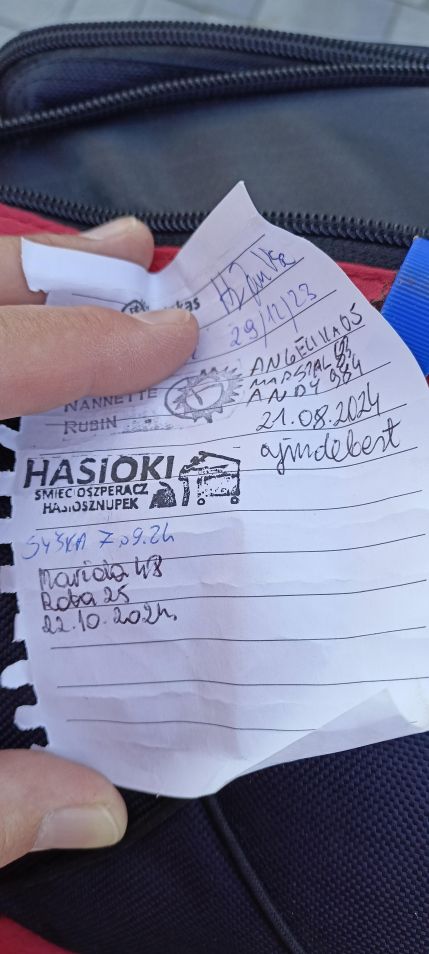 29/12/23
NANNETTE
RUBIN
ANGELIKA05
MARSZAL 92
ANDY 984
21.08.2024
ajmdebest
HASIOKI
ŚMIECIOSZPERACZ
HASIOSZNUPEK
SYŚKA 7.09.24
Mariola 48
Roba 25
22.10.2024r.